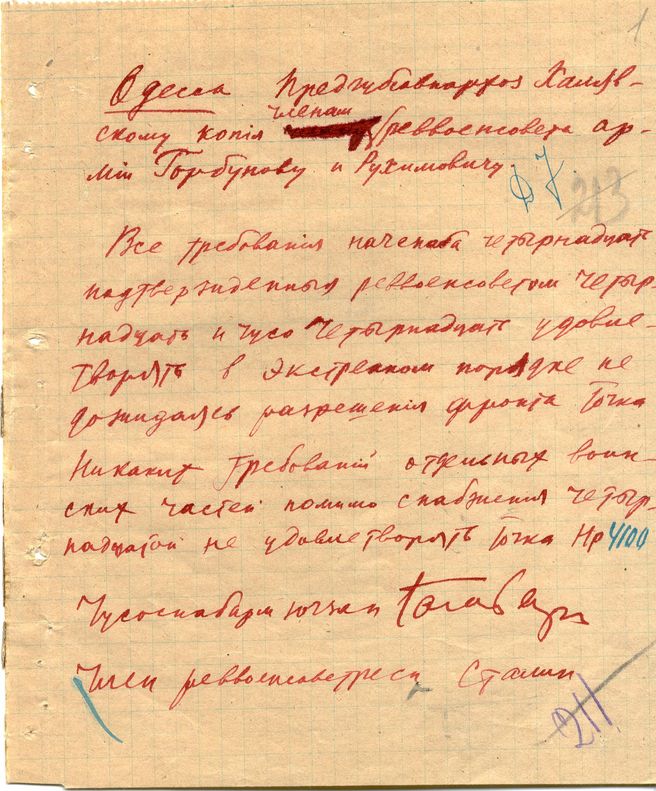 1
Одесса Предгубсовнархоз Халяв-
скому копія членам реввоенсовета ар-
міи Горбунову и Рухимовичу
213
Все требованія начснаба четырнадцать
подтвержденныя реввоенсоветом четыр-
надцать и чусо четырнадцать удовле-
творять в экстренном порядке не
дожидаясь разрешенія фронта Точка
Никаких требованій отдельных воин-
ских частей помимо снабженія четыр-
надцатой не удовлетворять Точка Нр 4100
Чусоснабарм югзап
Член реввоенсовета Сталин
211